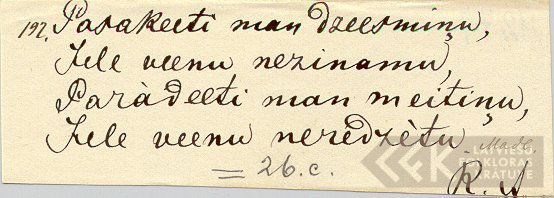 192. Pasakeeti man dzeesmiņu,
Jele veenu nezinamu,
Paràdeeti man meitiņu,
Jele veenu neredzètu.
Madl.
= 26. c.
R. A
LATVIEŠU
FOLKLORAS
KRĀTUVE